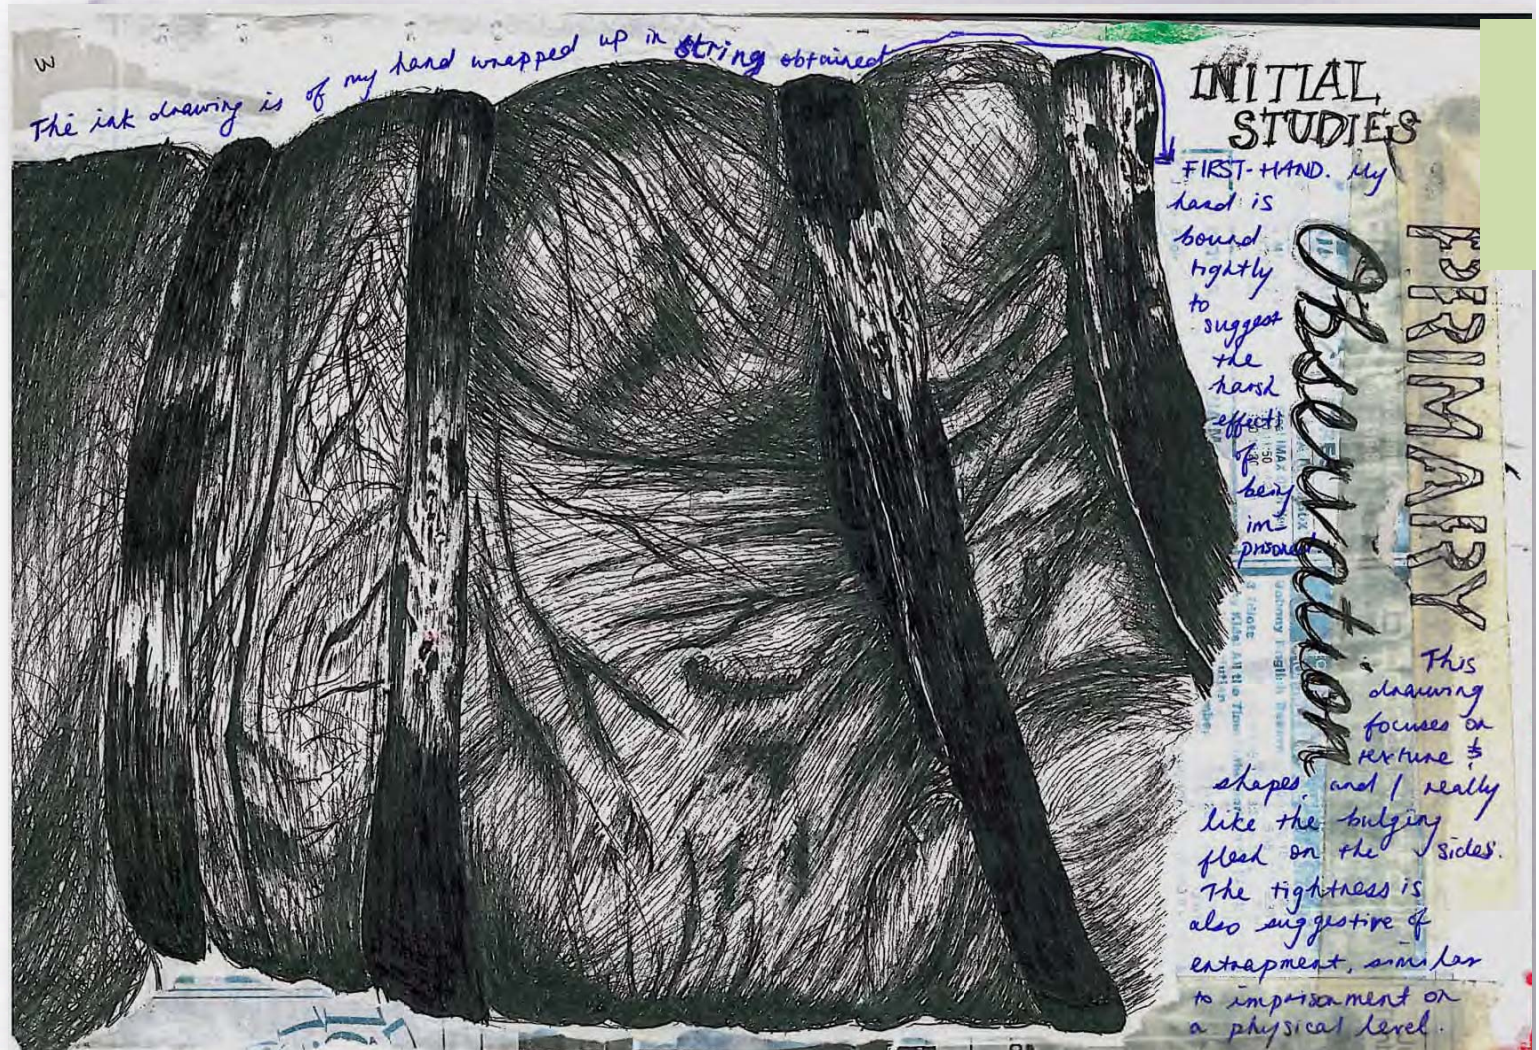 W
The ink drawing is of my hand wrapped up in string obtained
INITIAL
STUDIES
FIRST-HAND. My
hand is
bound
tightly
to
suggest
the
harsh
effects
of
being
im-
prisoned
Observation
PRIMARY
This
drawing
focuses on
texture &
shapes, and I really
like the bulging
flesh on the sides.
The tightness is
also suggestive of
entrapment, similar
to imprisonment on
a physical level.